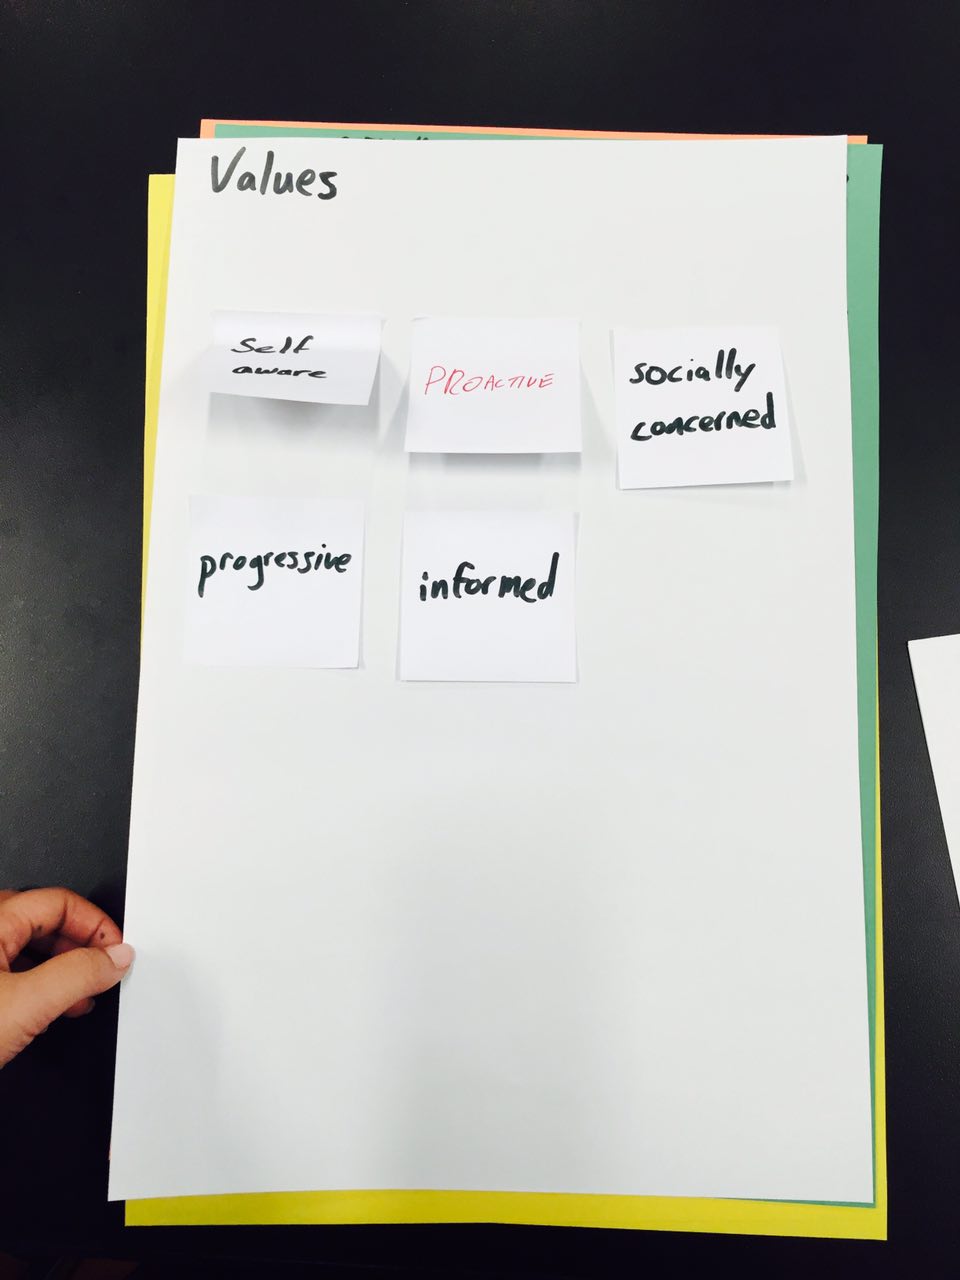 Values
Self
aware
PROACTIVE
socially
concerned
progressive
informed